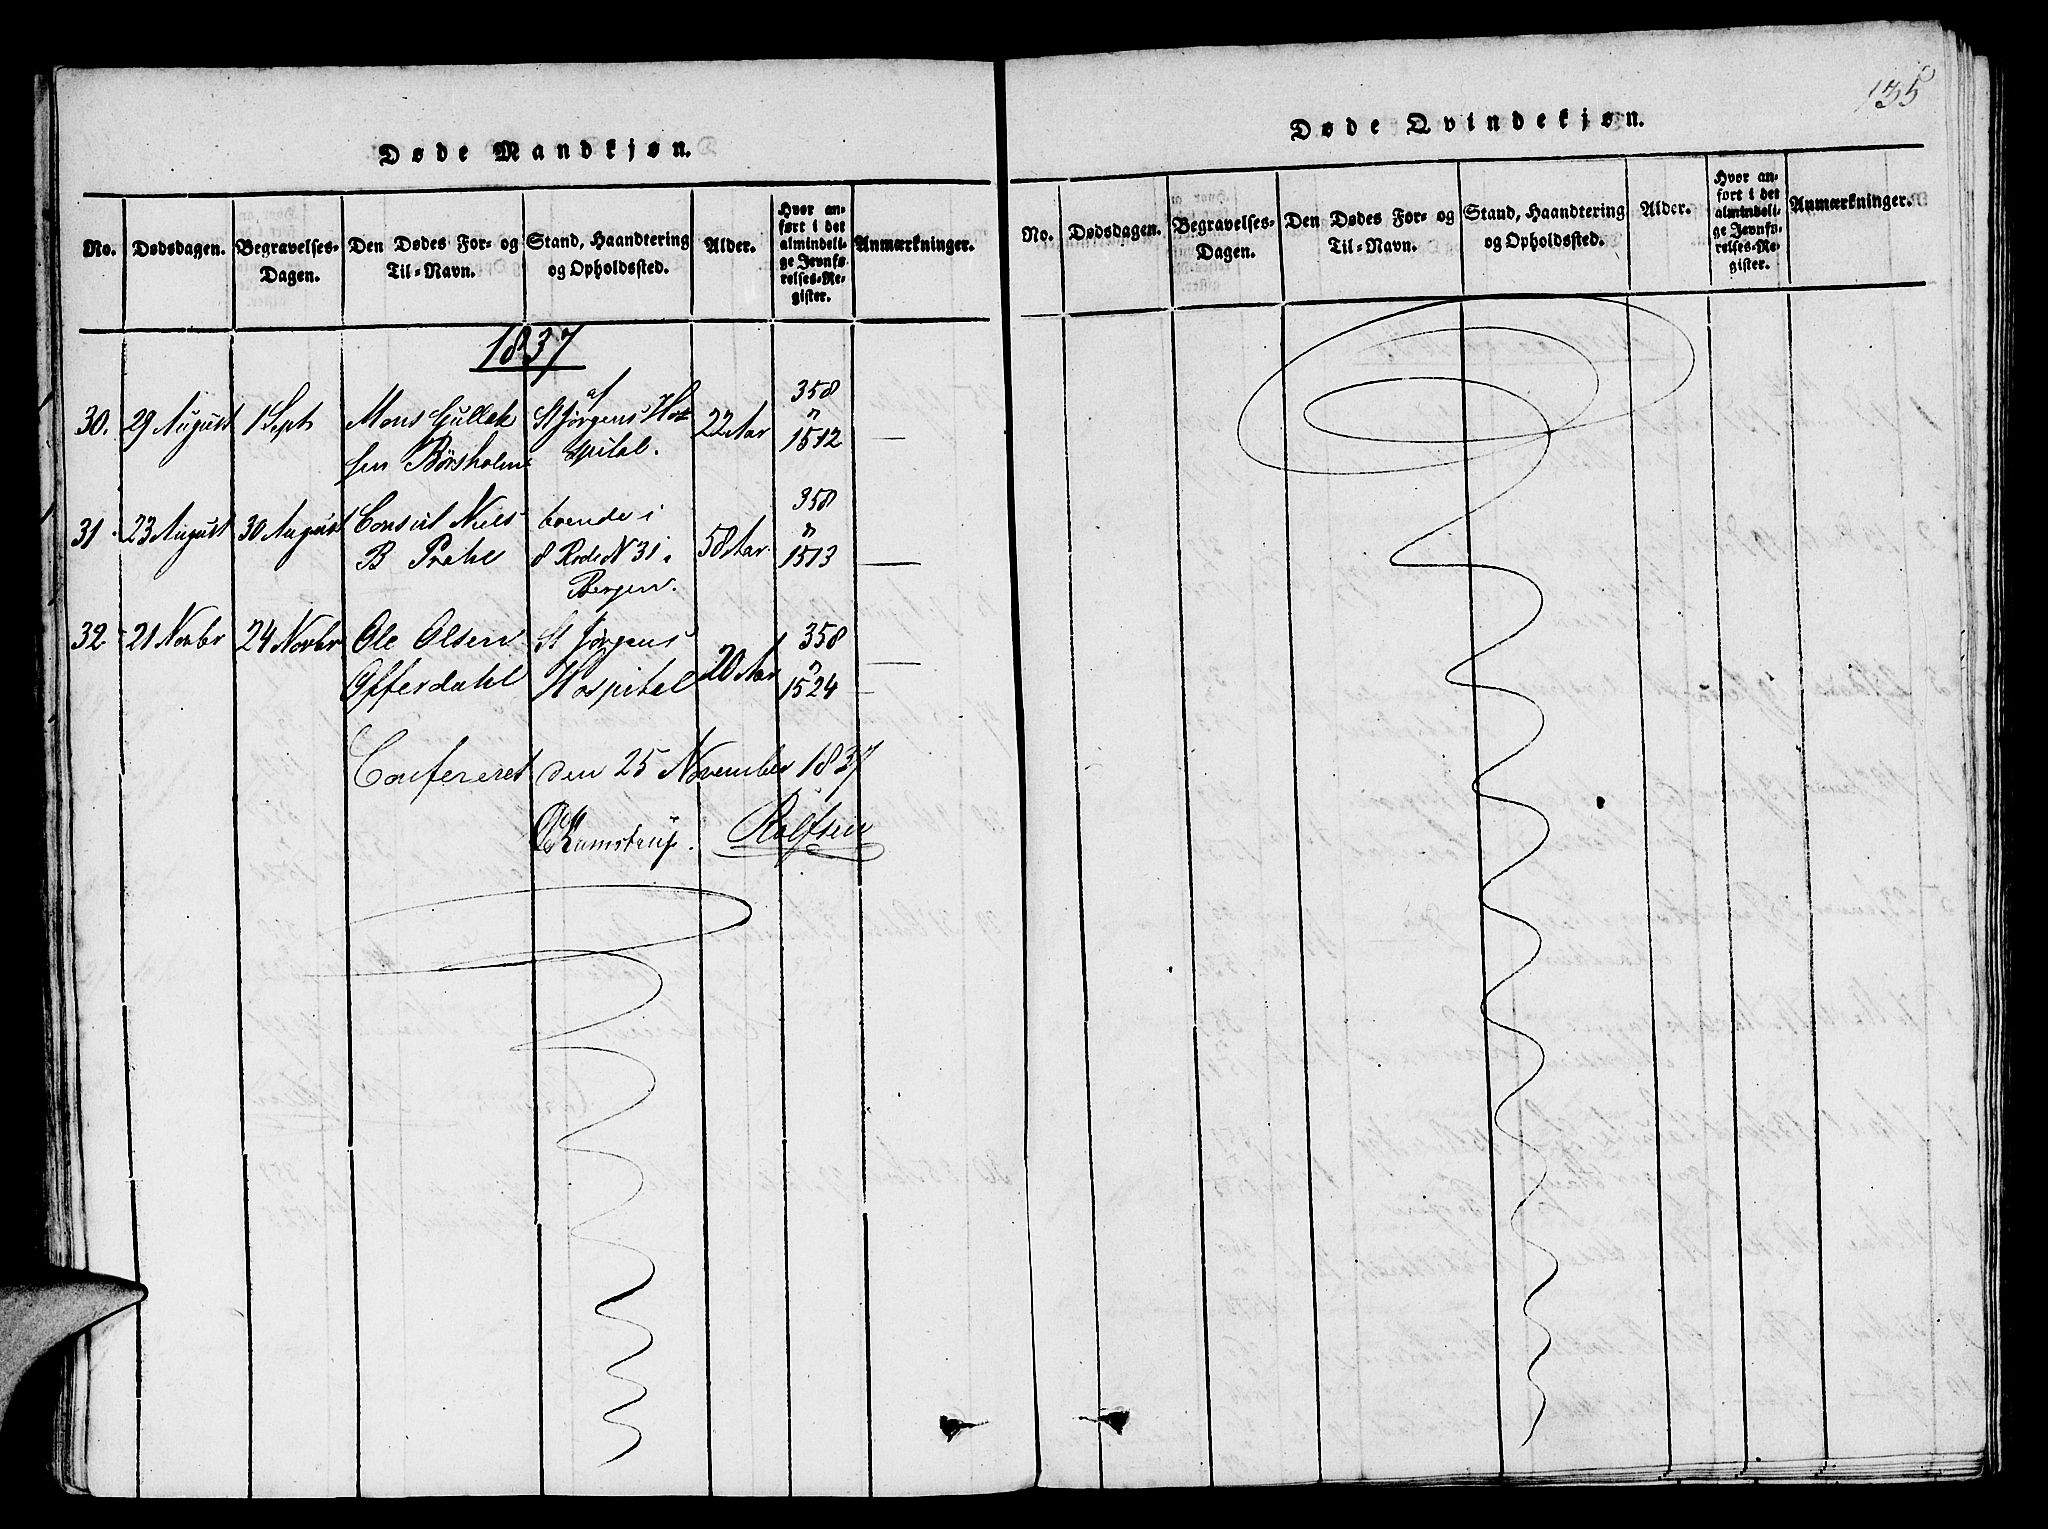 Døde Mandkjøn.
No. Dødsdagen. Begravelses-Dagen. Den Dødes For- og Til-Navn. Stand, Haandtering og Opholdssted. Alder. Hvor anført i det almindelige Jevnførelses-Register. Anmærkninger.
1837
30. 29 August 1 Sept Mons Gullak St Jørgens Ho= 22 Aar 358
af
sen Børsholm spital. " 1512 —
31. 23 August 30 August Consul Niels boende i 58 Aar. 358
B Prahl 8 Rode N 31 i " 1513 —
Bergen.
32 21 Novbr 24 Novbr Ole Olsen St Jørgens 20 Aar 358 —
Offerdahl Hospital " 1524 —
Confereret den 25 November 1837
Kamstrup. Rolfsen
135
Døde Qvindekjøn.
No. Dødsdagen. Begravelses-Dagen. Den Dødes For- og Til-Navn. Stand, Haandtering og Opholdssted. Alder. Hvor anført i det almindelige Jevnførelses-Register. Anmærkninger.